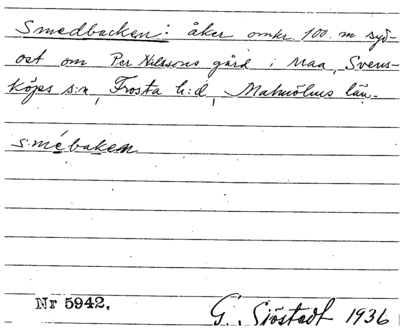 Smedbacken: åker omkr 100 m syd-
ost om Per Nilssons gård i Maa, Svens-
köps s:n, Frosta h:d, Malmöhus län.
smébaken
Nr 5942.
G. Sjöstedt 1936